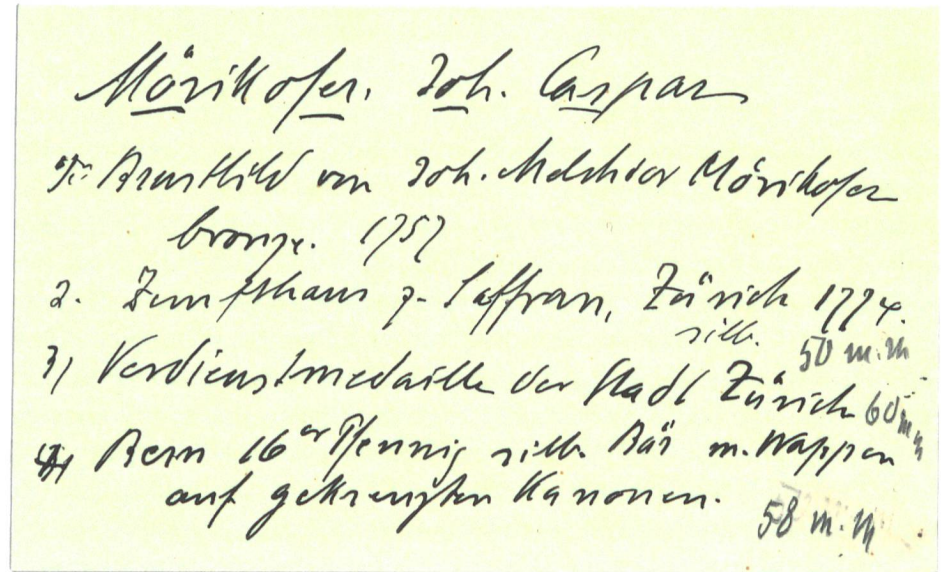 Mörikofer, Joh. Caspar
1. Brustbild von Joh. Melchior Mörikofer
bronze. 1757
2. Zunfthaus z. Saffran, Zürich 1774.
silb. 50 m.m
3) Verdienstmedaille der Stadt Zürich 60 m m
4) Bern 16er Pfennig silb. Bär m. Wappen
auf gekreuzten Kanonen.
58 m.m